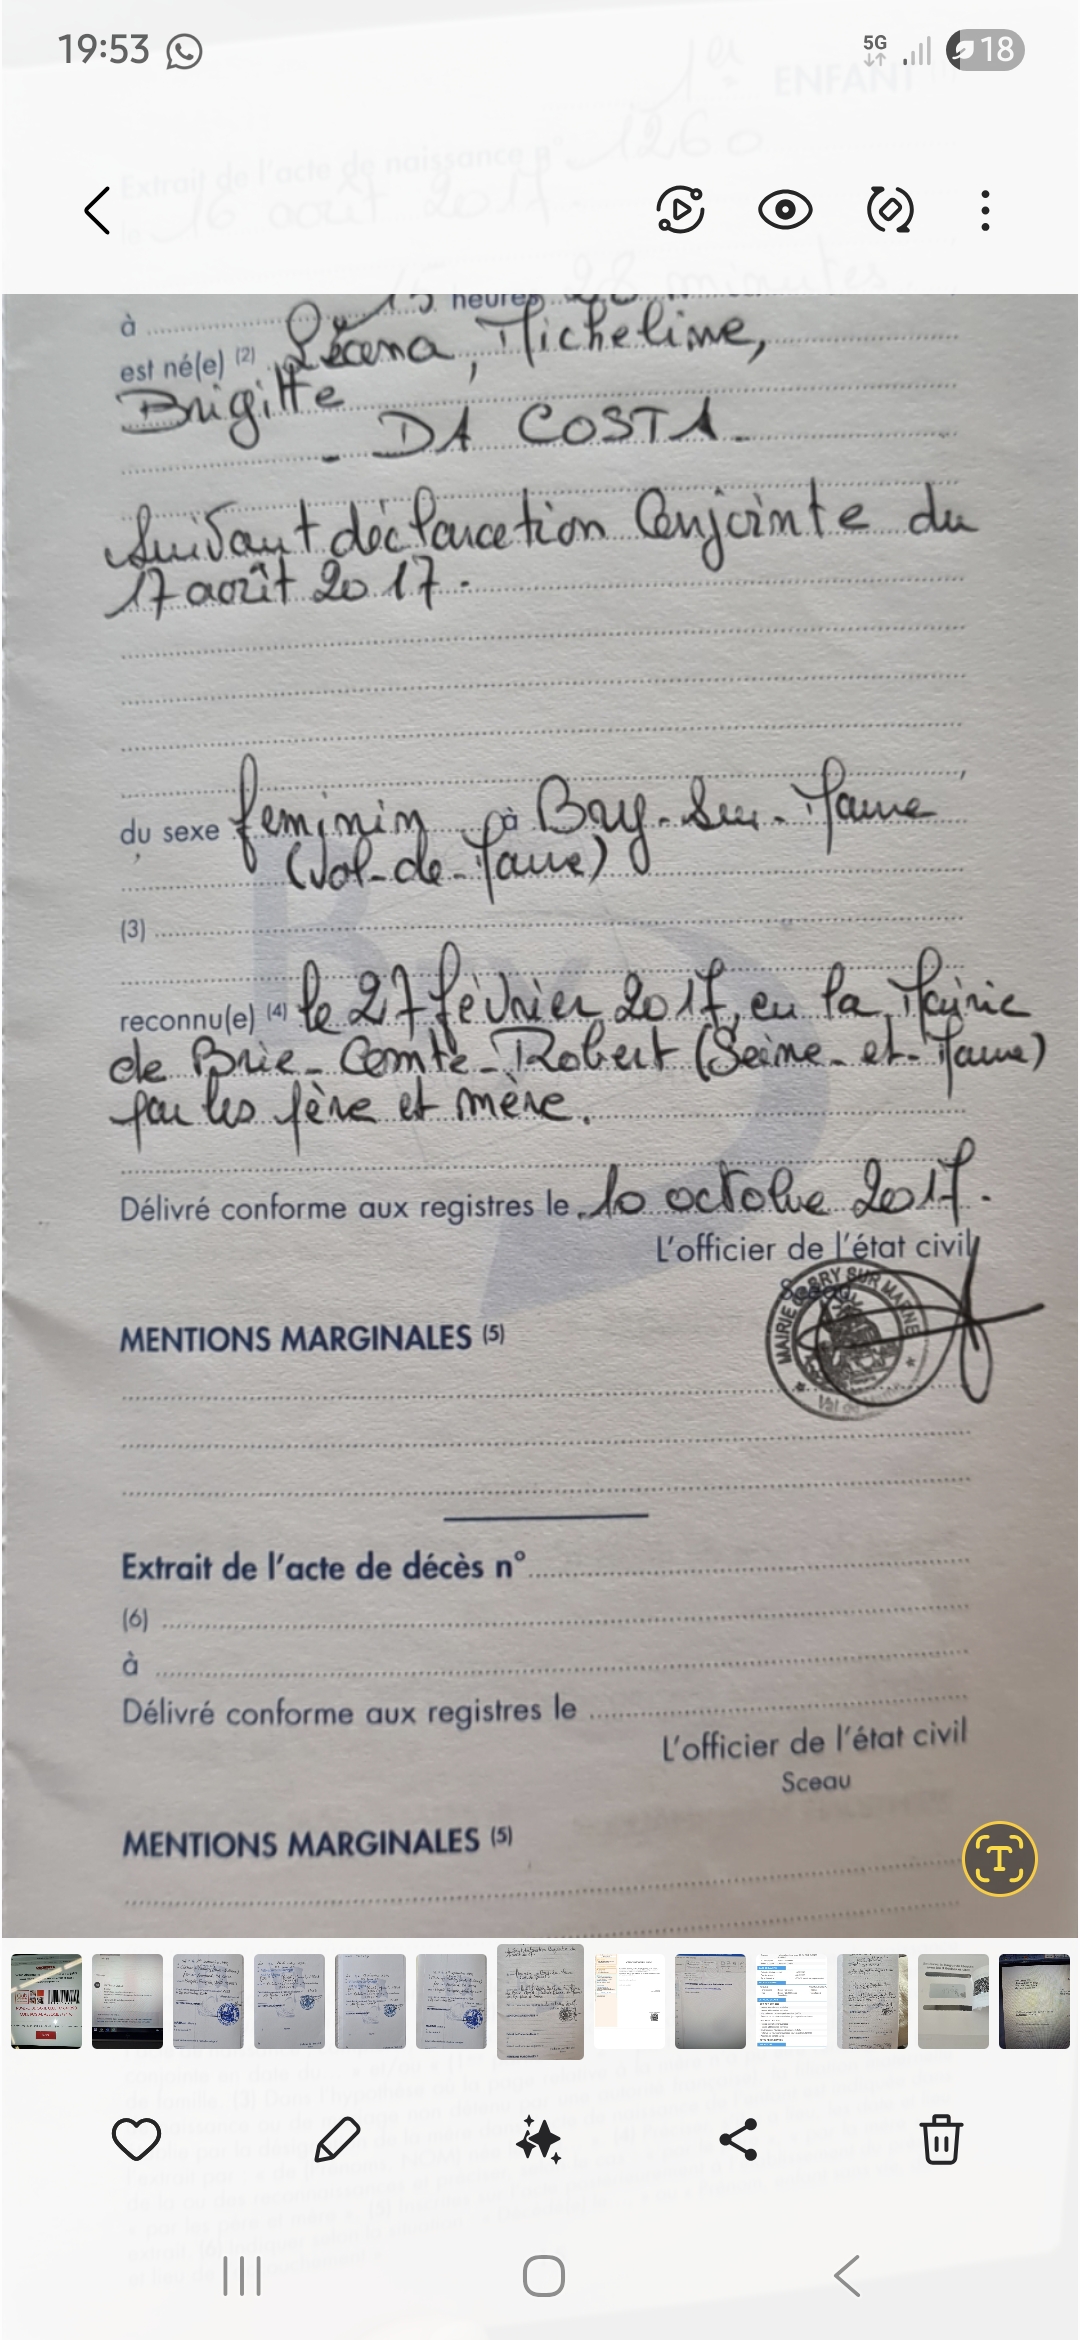 19:53
5G
18
1er ENFANT
Extrait de l'acte de naissance n° 1260
le 16 août 2017.
15 heures 28 minutes
à
est né(e) (2) Lécena, Micheline,
Brigitte
- DA COSTA.
Suivant déclaration Conjointe du
17 août 2017.
du sexe feminin à Bry-Sur-Marne
(Val-de-Marne)
(3)
reconnu(e) (4) le 27 février 2017, en la Mairie
de Brie-Comte-Robert (Seine-et-Marne)
par les père et mère.
Délivré conforme aux registres le 10 octobre 2017.
L'officier de l'état civil
Sceau
MAIRIE DE BRY SUR MARNE
Val de Marne
MENTIONS MARGINALES (5)
Extrait de l'acte de décès n°
(6)
à
Délivré conforme aux registres le
L'officier de l'état civil
Sceau
MENTIONS MARGINALES (5)
T